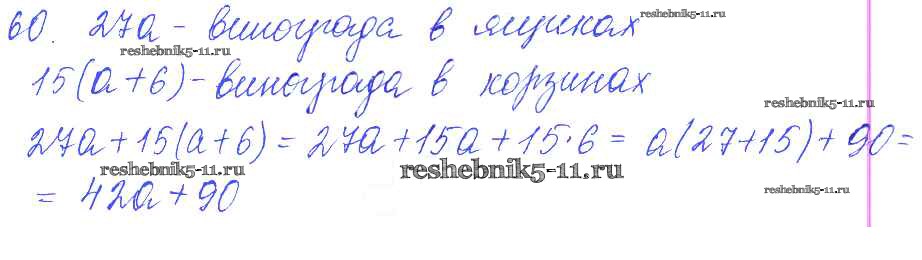 60. 27а - винограда в ящиках
reshebnik5-11.ru
reshebnik5-11.ru
15(а+6) - винограда в корзинах
reshebnik5-11.ru
27а+15(а+6) = 27а+15а+15·6 = а(27+15)+90 =
reshebnik5-11.ru
reshebnik5-11.ru
reshebnik5-11.ru
= 42а+90